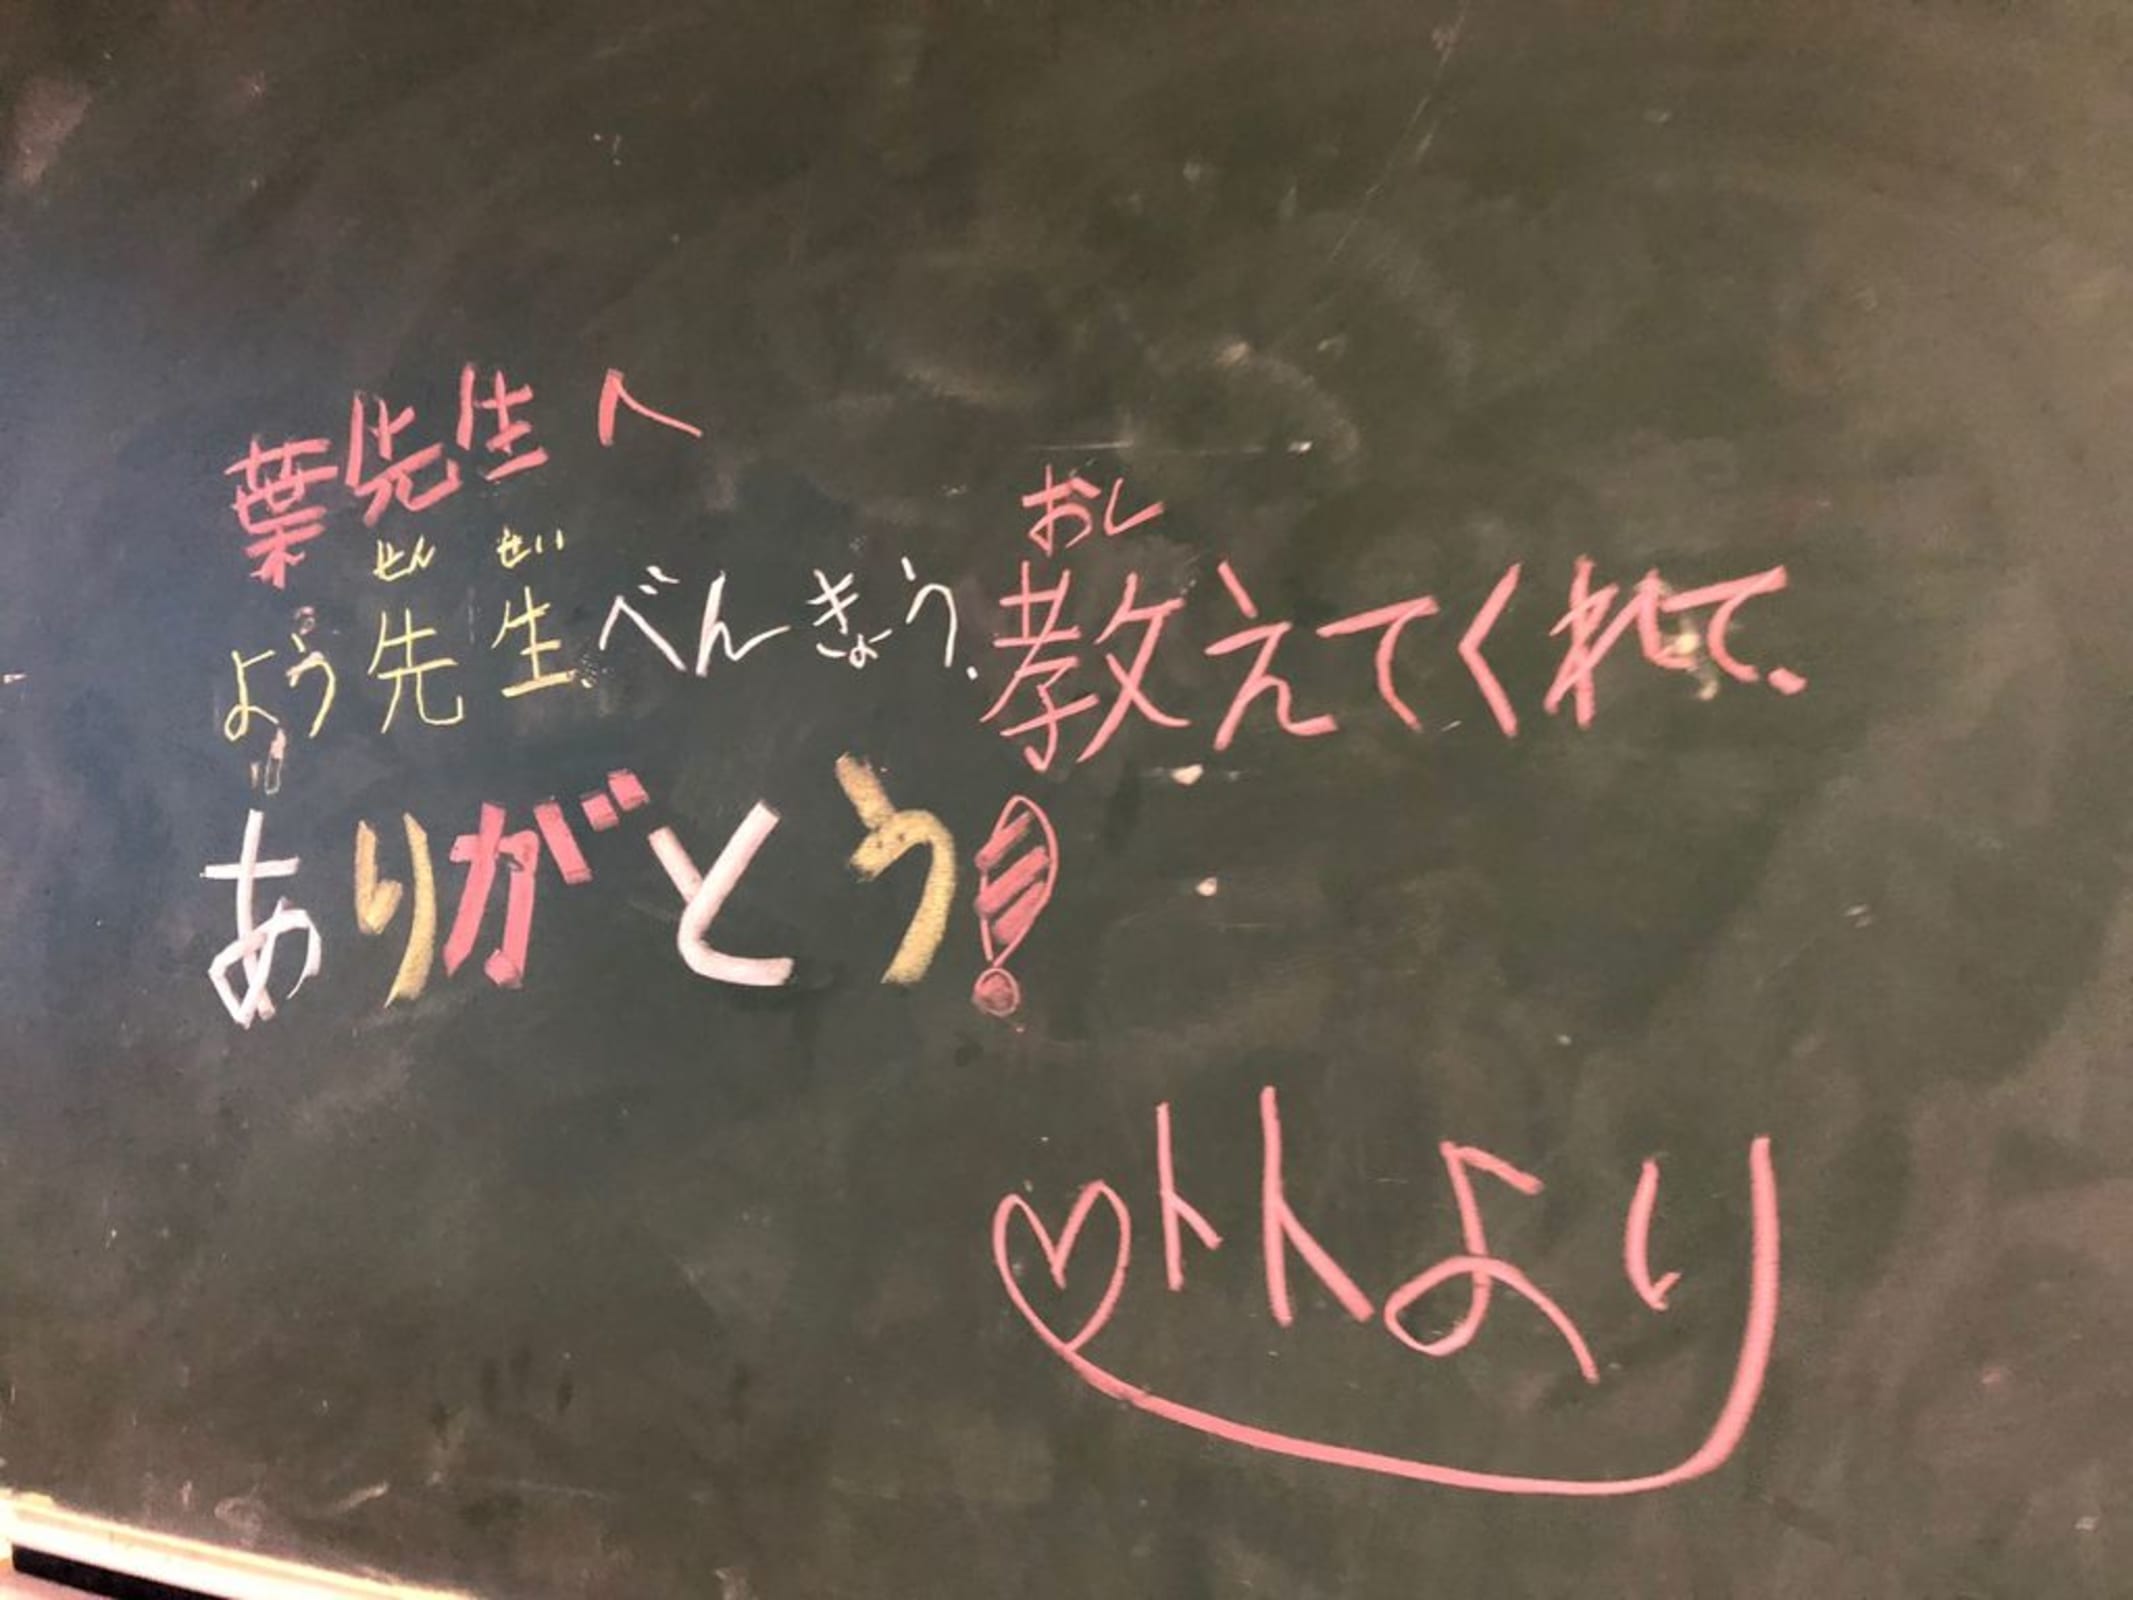 葉先生へ
せんせい おし
よう先生、べんきょう、教えてくれて、
ありがとう!
♡トトより